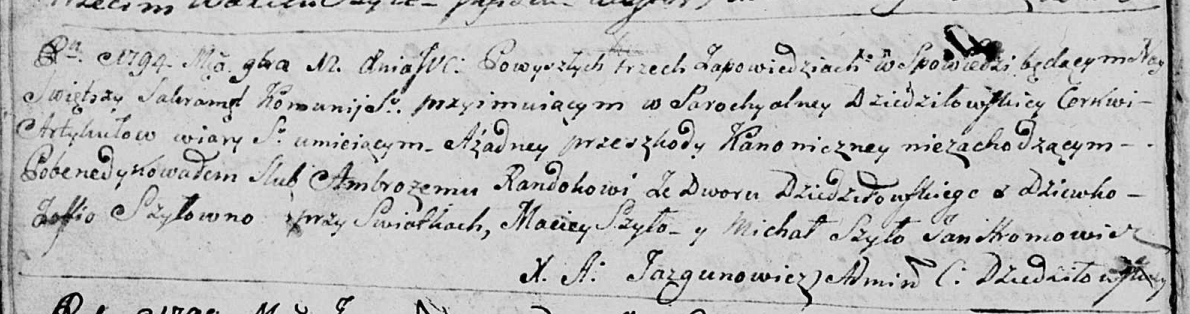 Rn. 1794. Mca gbra 12. dnia JVC: Po wyszłych trzech Zapowiedziach: w Spowiedzi będącym Nay
Swiętszy Sakramęt Komunij S°: przyimuiącym w Parochyalney Dziedziłowskiey Cerkwi –
Artykułow wiary S° umieiącym – Ażadney przeszkody Kanoniczney niezachodzącym –
Pobenedykowałem Slub Ambrożemu Randokowi Ze Dworu Dziedziłowskiego z dziewko –
Zoffio Szyłowno przy Swiatkach, Maciey Szyło – y Michał Szyło Jan Hromowicz
X. A: Jazgunowicz Admin C: Dziedziłowskiey